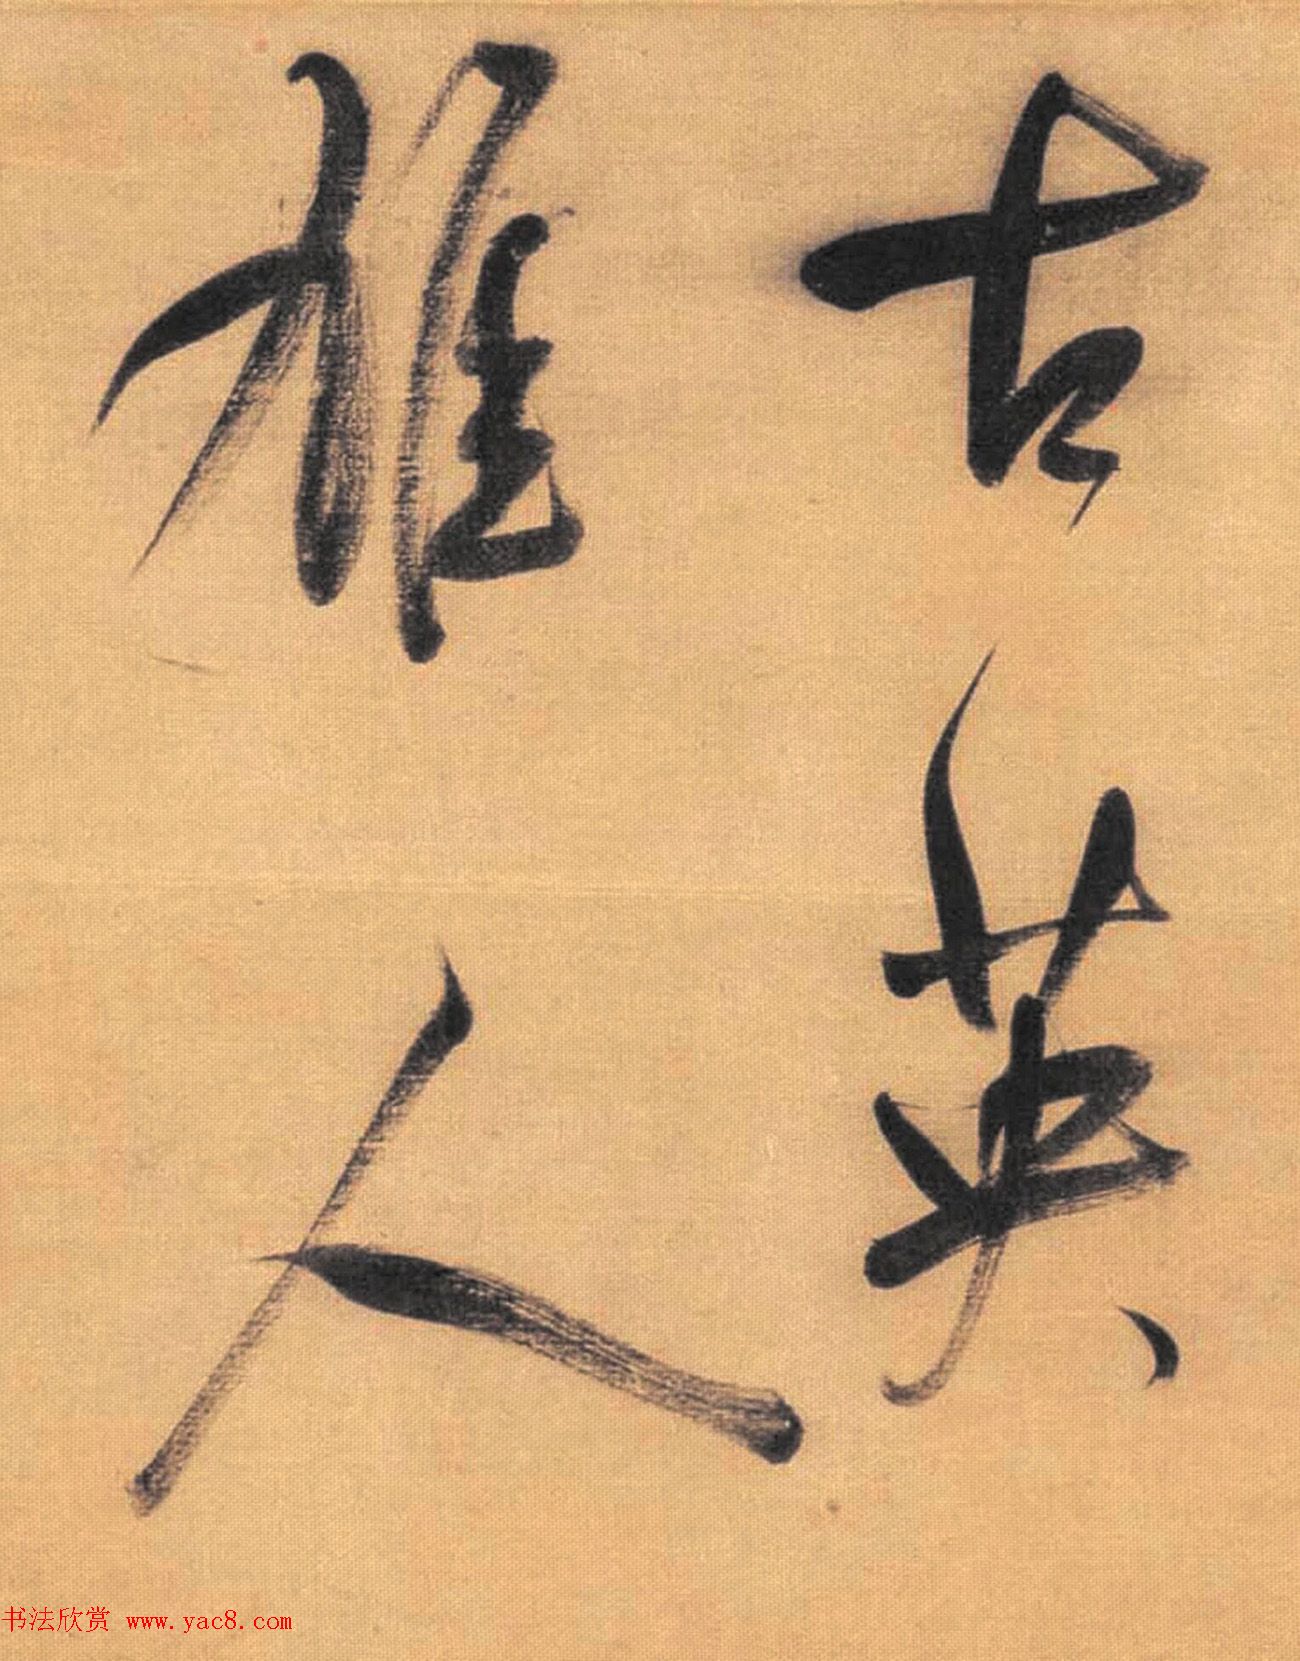 古英
人
书法欣赏 www.yac8.com